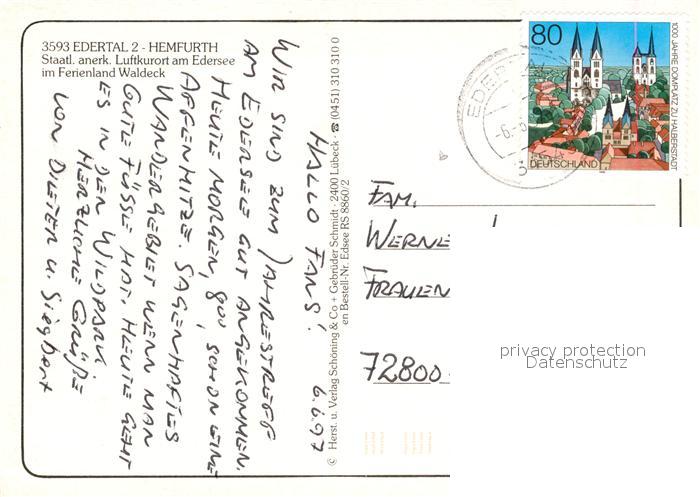 3593 EDERTAL 2 - HEMFURTH
Staatl. anerk. Luftkurort am Edersee
im Ferienland Waldeck
HALLO FANS! 6.6.97
WIR SIND ZUM JAHRESTREFF
AM EDERSEE GUT ANGEKOMMEN.
HEUTE MORGEN, 8⁰⁰, SCHON EINE
AFFENHITZE. SAGENHAFTES
WANDERGEBIET WENN MAN
GUTE FÜSSE HAT. HEUTE GEHT
ES IN DEN WILDPARK
HERZLICHE GRÜßE
VON DIETER U. Siegbert
© Herst. u. Verlag Schöning & Co + Gebrüder Schmidt · 2400 Lübeck · ☎ (0451) 310 310 0
en Bestell-Nr. Edsee RS 8860/2
80
1000 JAHRE DOMPLATZ ZU HALBERSTADT
DEUTSCHLAND
EDERTA
-6.
FAM.
WERNE
FRAUEN
72800
privacy protection
Datenschutz